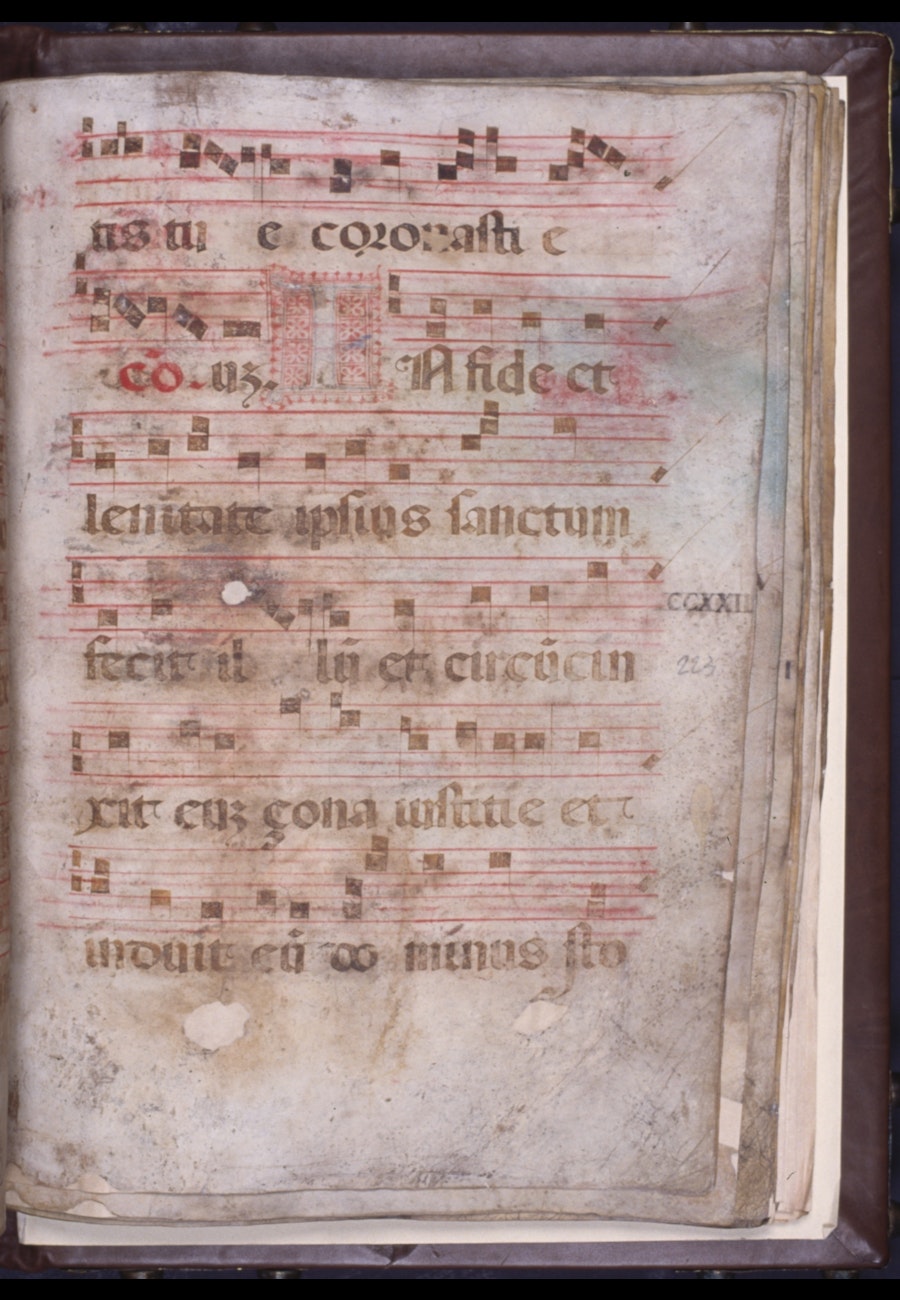 tis tu e coronasti e
cō uȝ. IN fide et
lenitate ipsius sanctum
fecit il lū et circūcin
xit euȝ çona iustitie et
induit eū do minus sto
CCXXII
223